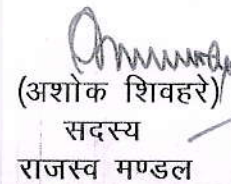 (अशोक शिवहरे)
सदस्य
राजस्व मण्डल